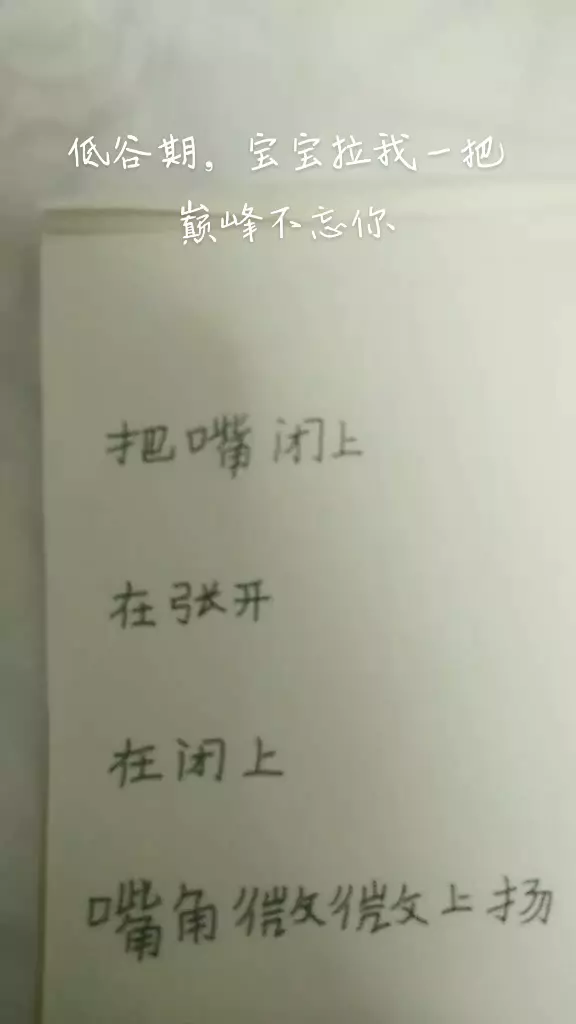 低谷期，宝宝拉我一把
巅峰不忘你
把嘴闭上
在张开
在闭上
嘴角微微上扬